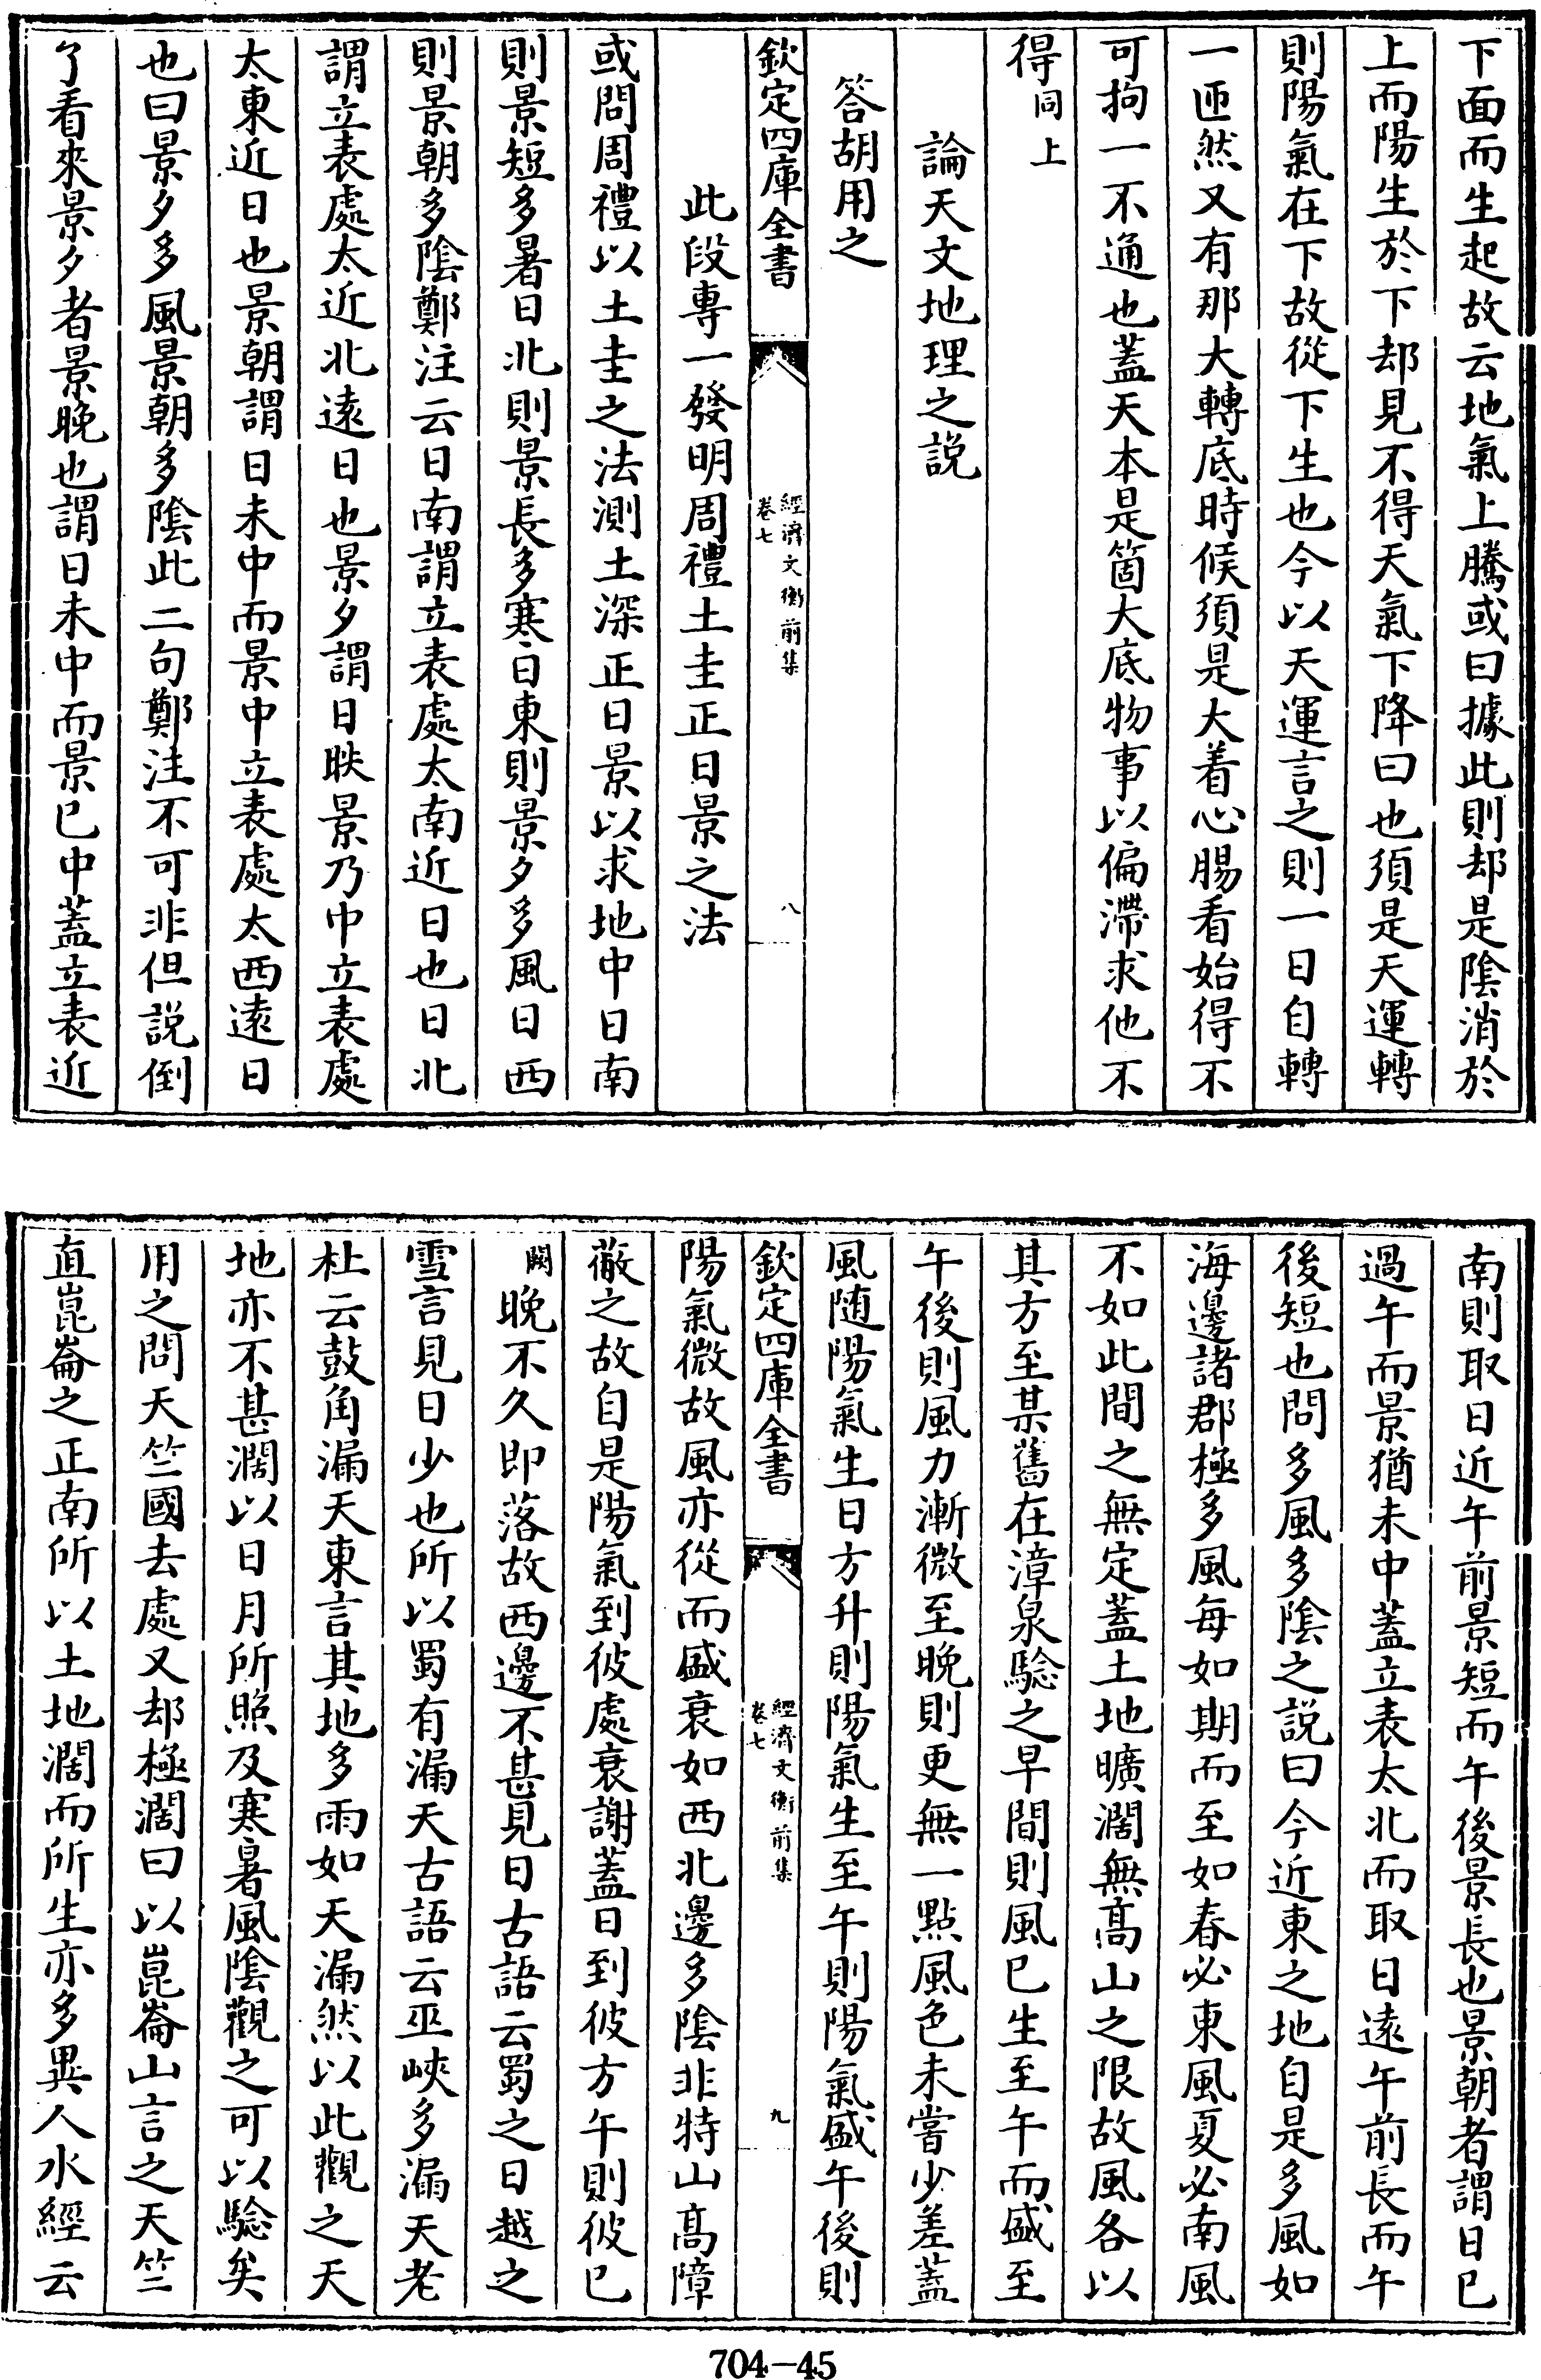 下面而生起故云地氣上騰或曰據此則却是陰消於
上而陽生於下却見不得天氣下降曰也須是天運轉
則陽氣在下故從下生也今以天運言之則一日自轉
一匝然又有那大轉底時候須是大着心腸看始得不
可拘一不通也蓋天本是箇大底物事以偏滯求他不
得同上
論天文地理之説
答胡用之
欽定四庫全書
經濟文衡前集
卷七
八
此段專一發明周禮土圭正日景之法
或問周禮以土圭之法測土深正日景以求地中日南
則景短多暑日北則景長多寒日東則景夕多風日西
則景朝多陰鄭注云日南謂立表處太南近日也日北
謂立表處太近北逺日也景夕謂日昳景乃中立表處
太東近日也景朝謂日未中而景中立表處太西逺日
也曰景夕多風景朝多陰此二句鄭注不可非但説倒
了看來景夕者景晚也謂日未中而景已中蓋立表近
南則取日近午前景短而午後景長也景朝者謂日已
過午而景猶未中蓋立表太北而取日逺午前長而午
後短也問多風多陰之説曰今近東之地自是多風如
海邊諸郡極多風每如期而至如春必東風夏必南風
不如此間之無定蓋土地曠濶無髙山之限故風各以
其方至某舊在漳泉驗之早間則風已生至午而盛至
午後則風力漸微至晚則更無一點風色未嘗少差蓋
風随陽氣生日方升則陽氣生至午則陽氣盛午後則
欽定四庫全書
經濟文衡前集
卷七
九
陽氣微故風亦從而盛衰如西北邊多陰非特山髙障
蔽之故自是陽氣到彼處衰謝蓋日到彼方午則彼已
闕晚不久即落故西邊不甚見日古語云蜀之日越之
雪言見日少也所以蜀有漏天古語云巫峽多漏天老
杜云鼓角漏天東言其地多雨如天漏然以此觀之天
地亦不甚濶以日月所照及寒暑風陰觀之可以驗矣
用之問天竺國去處又却極濶曰以崑崙山言之天竺
直崑崙之正南所以土地濶而所生亦多異人水經云
704-45